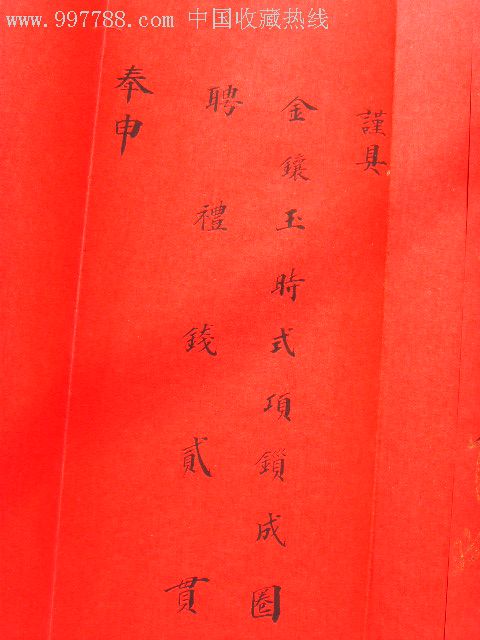 www.997788.com 中国收藏热线
謹具
金鑲玉時式項鎖成圈
聘禮錢貳貫
奉申